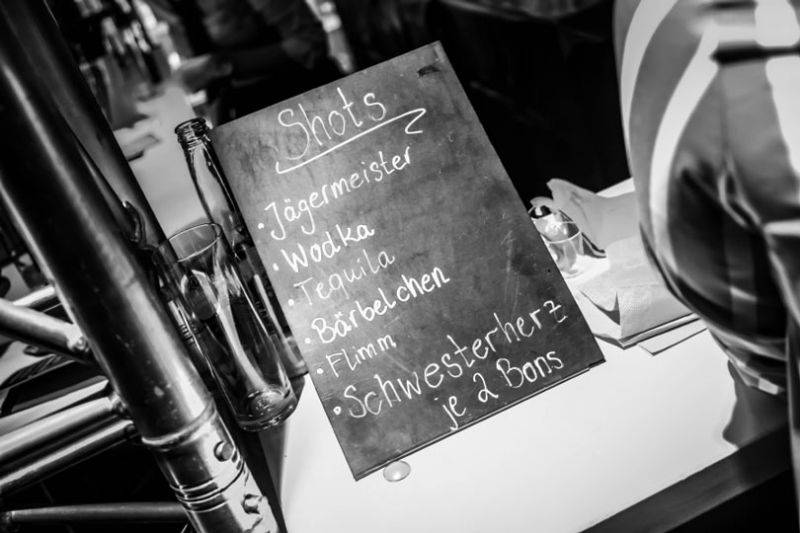 Shots
· Jägermeister
· Wodka
· Tequila
· Bärbelchen
· Flimm
· Schwesterherz
je 2 Bons